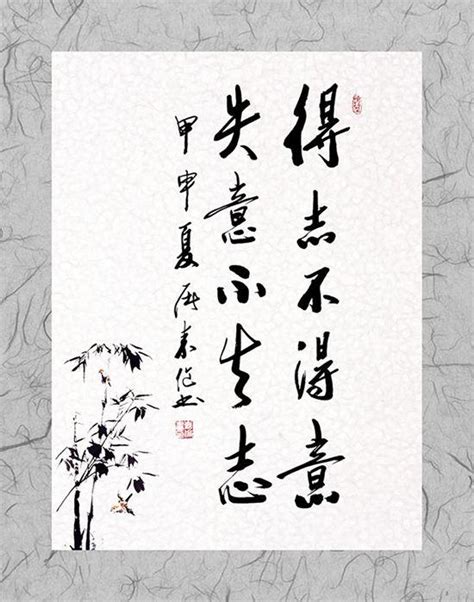 得志不得意
失意不失志
甲申夏 书